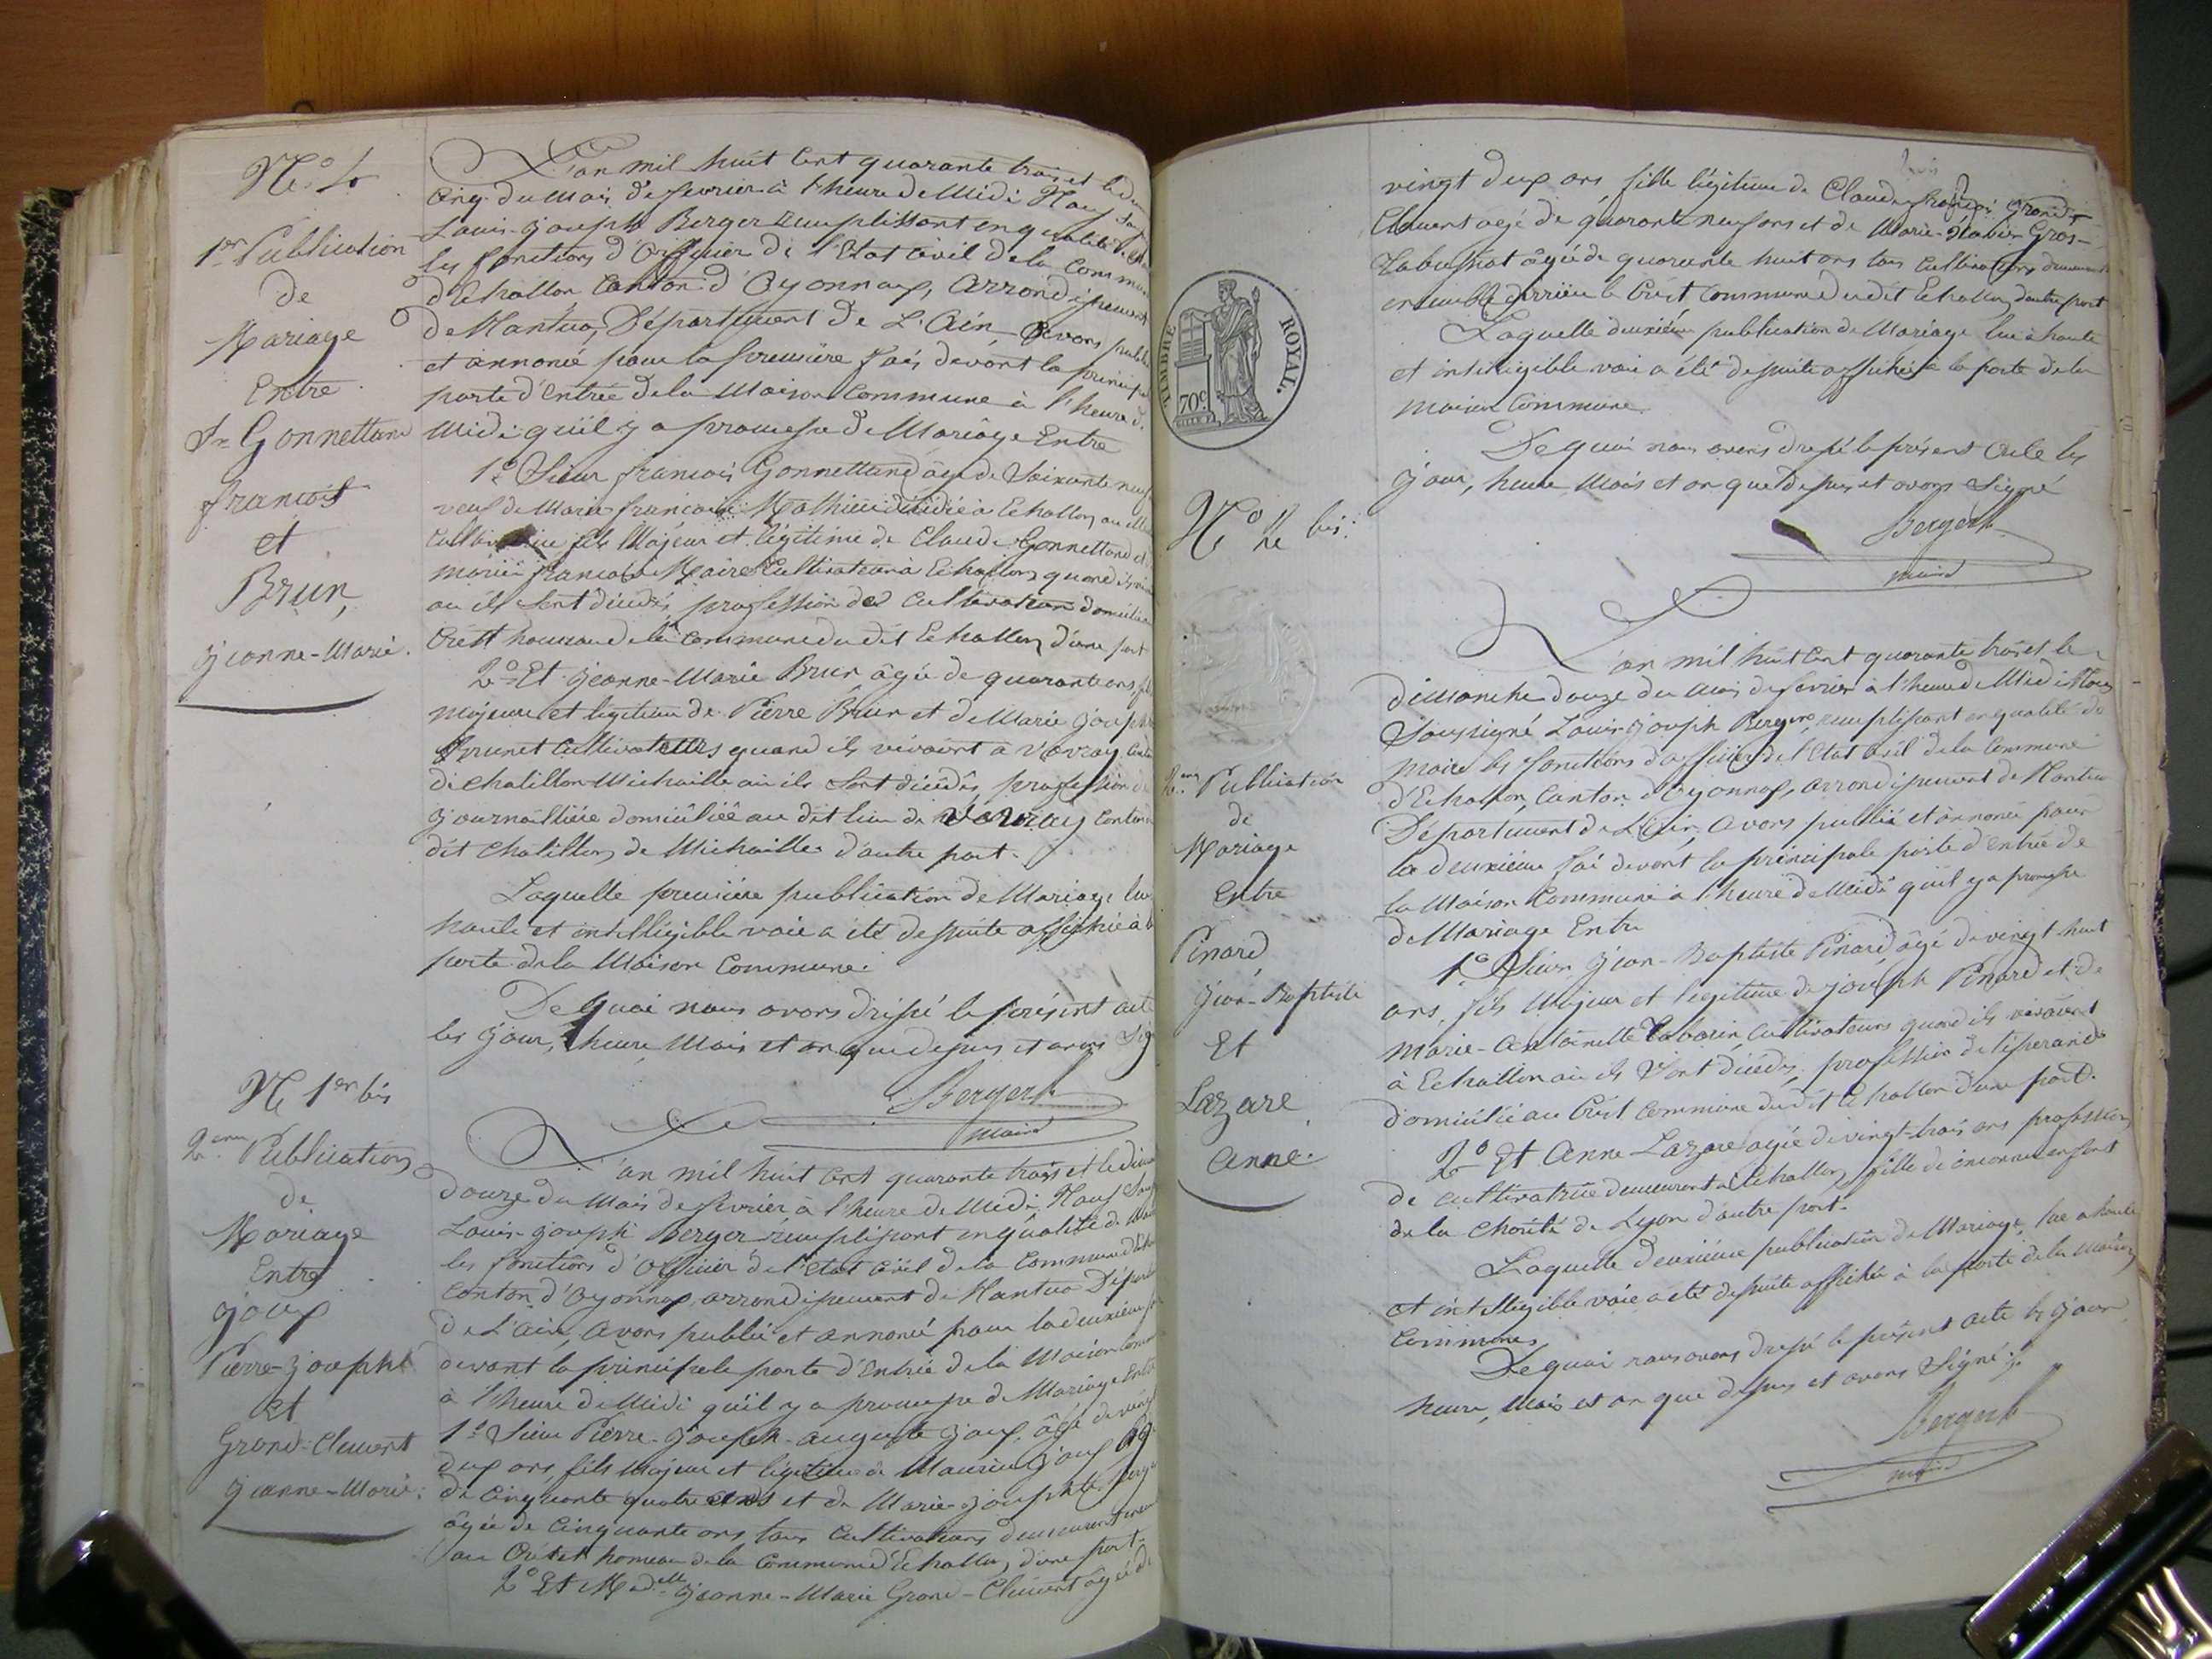 No. 4
1re Publication
de
Mariage
Entre
Sr. Gonnettand
francois
et
Brun,
jeanne-Marie.
L'an mil huit Cent quarante trois et le
cinq du Mois de fevrier à l'heure de Midi Nous
Louis-joseph Berger remplissant en qualité de
les fonctions d'Officier de l'Etat civil de la Commune
d'Echallon Canton d'Oyonnax, Arrondissement
de Nantua, Département de L'Ain, Avons publié
et annoncé pour la premiere fois devant la principale
porte d'Entrée de la Maison Commune à l'heure de
Midi qu'il y a promesse de Mariage Entre
1o Sieur francois Gonnettand âgé de Soixante neuf
veuf de Marie francoise Mathieu décédée à Echallon ou elle
fils Majeur et légitime de Claude Gonnettand et
marie francoise Maire Cultivateurs a Echallon quand ils
ou ils sont décédés, profession de Cultivateur domicilié
Crêt hameau de la Commune du dit Echallon d'une part
2o Et jeanne-Marie Brun âgée de quarante ans,
majeure et légitime de Pierre Brun et de Marie joseph
Brunet Cultivateurs quand ils vivaient a Vovray
de chatillon Michaille ou ils sont décédés, profession de
journallière domiciliée au dit lieu de Vovray
dit Chatillon de Michaille d'autre part.
Laquelle premiere publication de Mariage lue
haute et intelligible voix a été de suite affichée à la
porte de la Maison Commune.
De quoi nous avons dressé le présent acte
les jour, heure Mois et an que dessus et avons
Berger
maire
No 1er bis
2eme Publication
de
Mariage
Entre
joux
Pierre-joseph
et
Grand-Clement
jeanne-Marie.
L'an mil huit Cent quarante trois et le
douze du Mois de fevrier, à l'heure de Midi, Nous
Louis-joseph Berger remplissant en qualité de
les fonctions d'Officier de l'Etat civil de la Commune
Canton d'Oyonnax, arrondissement de Nantua
de L'Ain, Avons publié et annoncé pour la deuxième
devant la principale porte d'Entrée de la Maison
à l'heure de Midi qu'il y a promesse de Mariage
1o Sieur Pierre-joseph-auguste joux, âgé de vingt
deux ans, fils Majeur et légitime de joux
de cinquante quatre ans et de Marie-josephte
âgée de Cinquante ans tous Cultivateurs demeurant
au Crêt hameau de la Commune d'Echallon d'une part
2o Et Madelle jeanne-Marie Grand-Clement âgée de
vingt deux ans fille légitime de Claude francois Grand-
Clement âgé de quarante neuf ans et de Marie- Gros-
âgée de quarante huit ans tous Cultivateurs demeurant
ensemble derrière le Crêt Commune du dit Echallon d'autre part
Laquelle deuxième publication de Mariage lue à haute
et intelligible voix a été de suite affichée à la porte de la
maison Commune.
De quoi nous avons dressé le présent Acte les
jour, heure Mois et an que dessus et avons Signé
Berger
maire
TIMBRE ROYAL.
70c
No 2 bis.
2eme Publication
de
Mariage
Entre
Pinard
jean-Baptiste
Et
Lazare
Anne.
L'an mil huit Cent quarante trois et le
dimanche douze du Mois de fevrier à l'heure de Midi Nous
Soussigné Louis-joseph Berger, remplissant en qualité de
Maire les fonctions d'officier de l'Etat civil de la Commune
d'Echallon, Canton d'Oyonnax, arrondissement de Nantua
Département de L'Ain, Avons publié et annoncé pour
la deuxième fois devant la principale porte d'entrée de
la Maison Commune à l'heure de Midi qu'il y a promesse
de Mariage Entre
1o Sieur jean-Baptiste Pinard, âgé de vingt huit
ans, fils Majeur et légitime de joseph Pinard et de
Marie-Antoinette cultivateurs quand ils vivaient
à Echallon ou ils Sont décédés, profession de
domicilié au Crêt Commune du dit Echallon d'une part.
2o Et Anne Lazare agée de vingt-trois ans profession
de cultivatrice demeurant a Echallon, fille de inconnu enfant
de la Charité de Lyon d'autre part.
Laquelle deuxième publication de Mariage, lue a haute
et intelligible voix a été de suite affichée à la porte de la Maison
Commune,
De quoi nous avons dressé le présent acte les jour
heure, Mois et an que dessus et avons Signé
Berger
maire